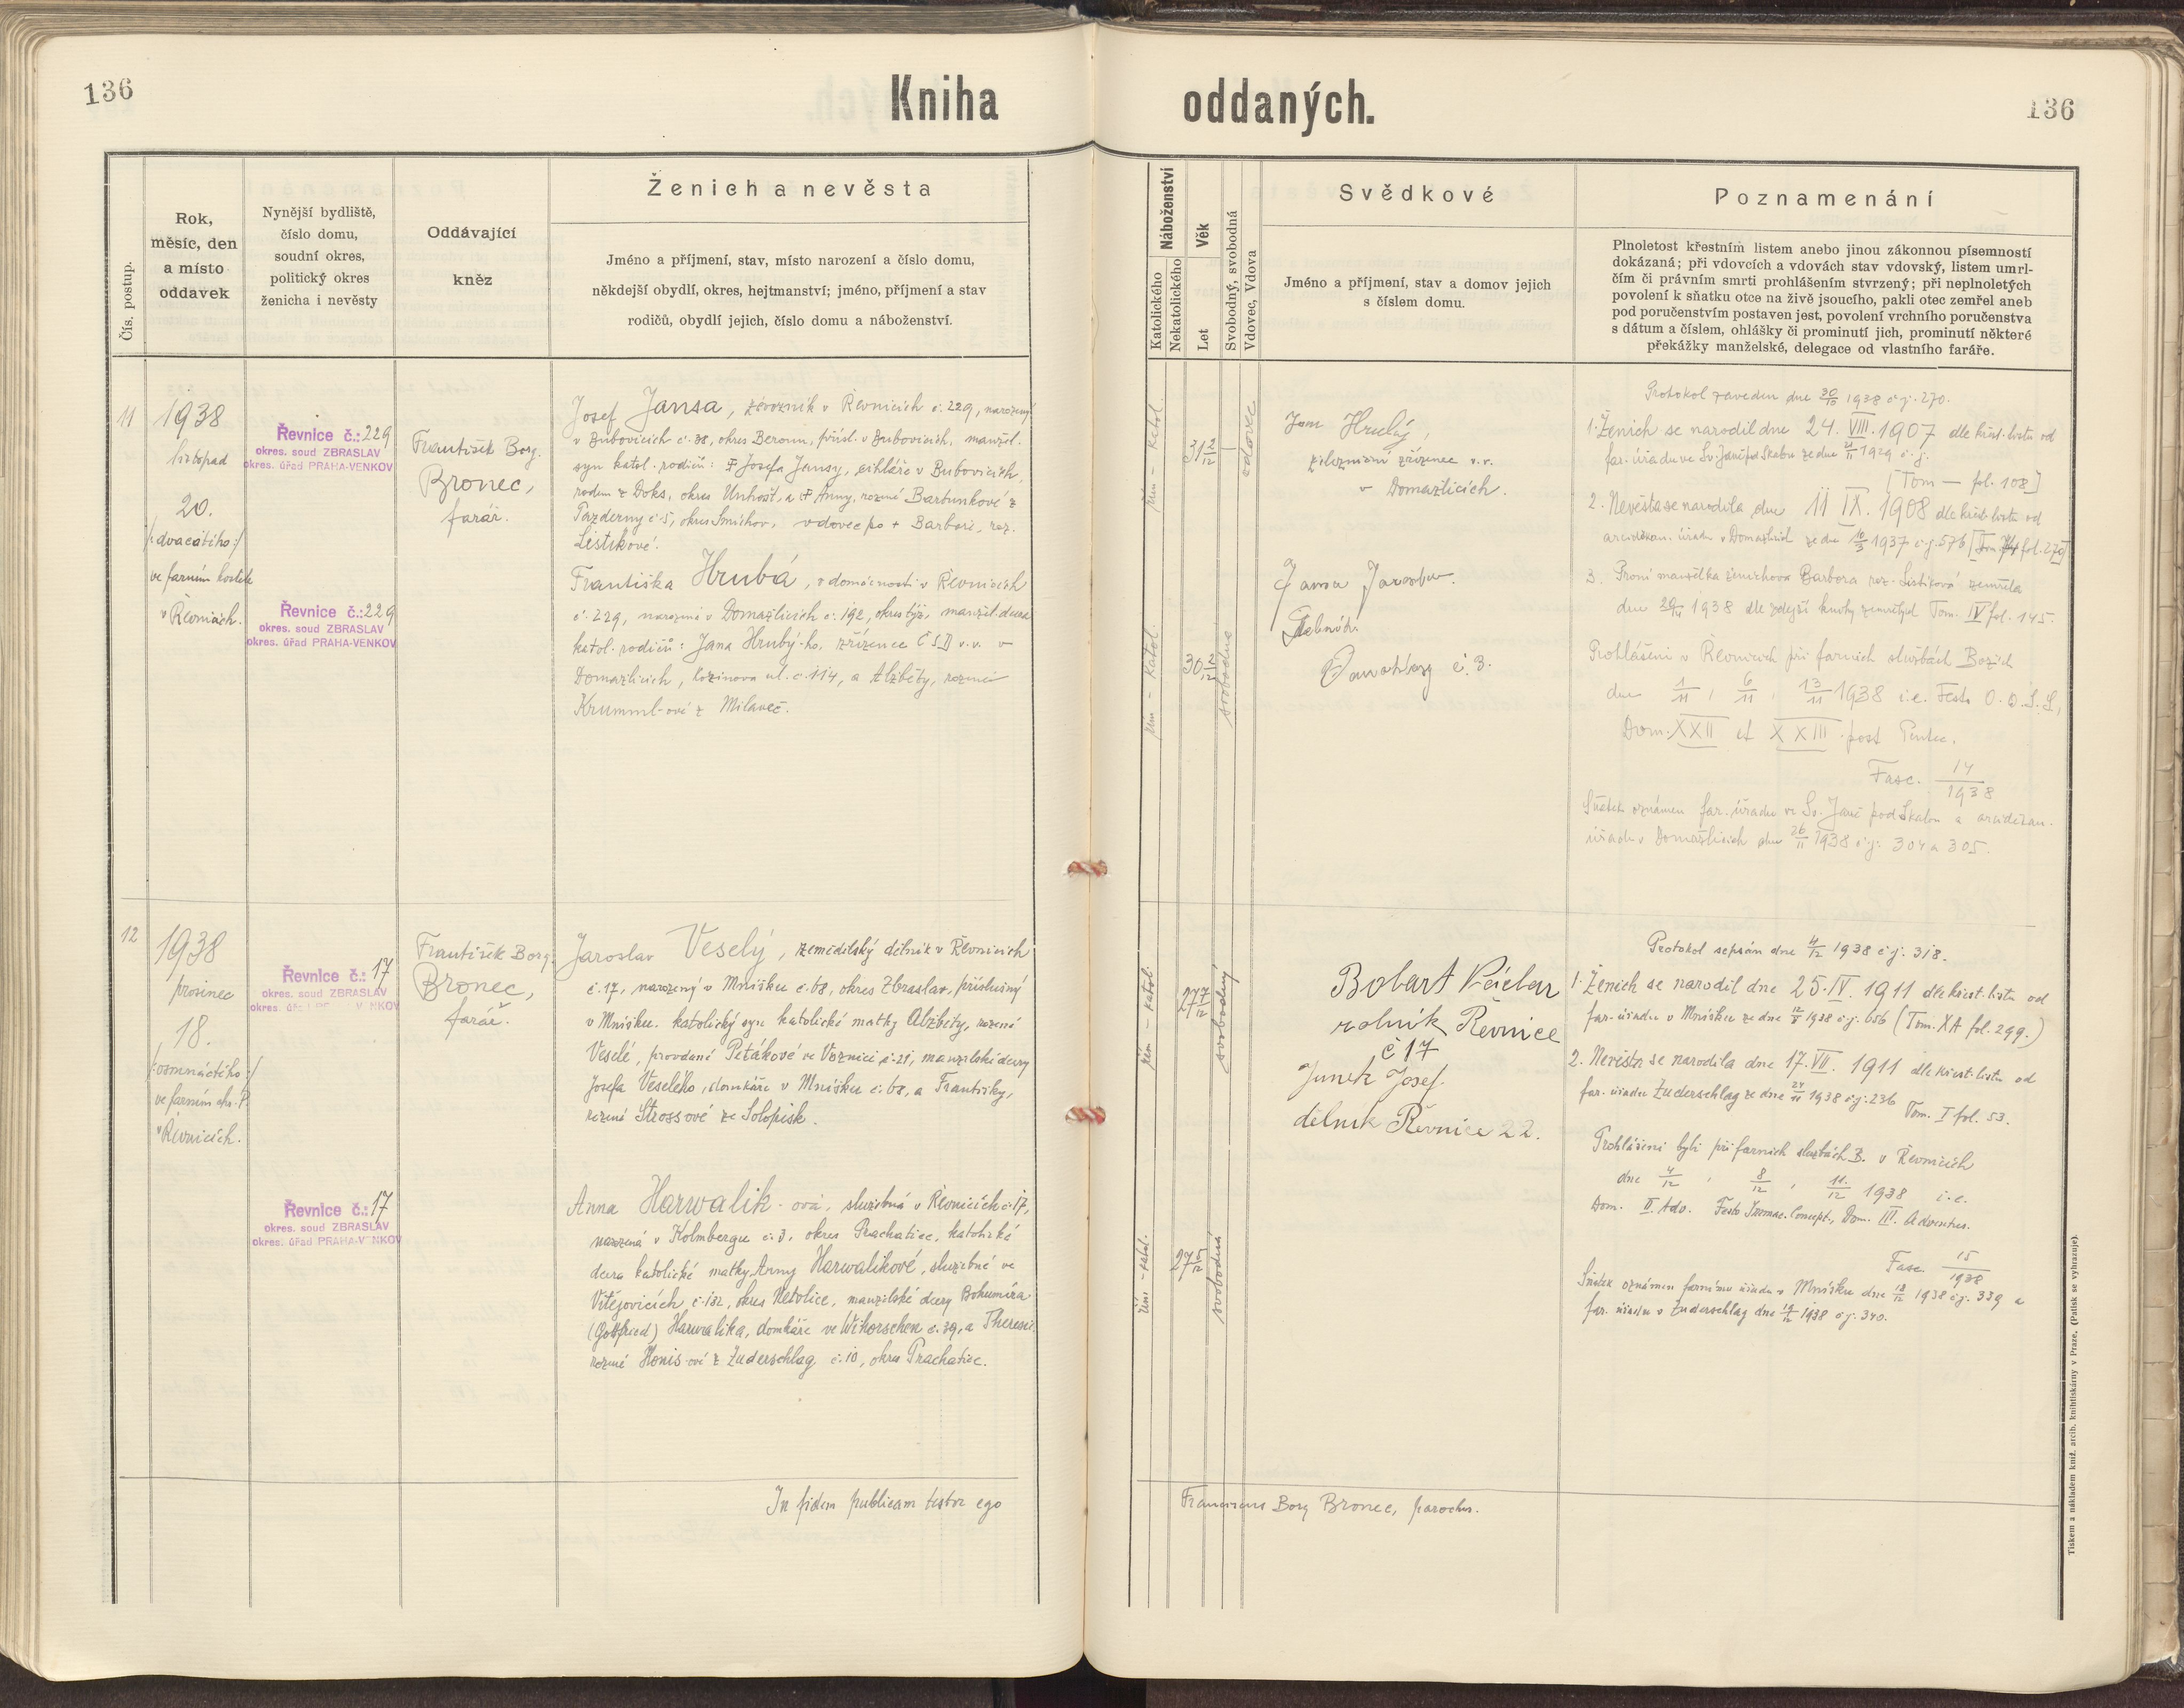 136
Kniha oddaných.
136
Čís. postup.
Rok,
měsíc, den
a místo
oddavek
Nynější bydliště,
číslo domu,
soudní okres,
politický okres
ženicha i nevěsty
Oddávající
kněz
Ženich a nevěsta
Jméno a příjmení, stav, místo narození a číslo domu,
někdejší obydlí, okres, hejtmanství; jméno, příjmení a stav
rodičů, obydlí jejich, číslo domu a náboženství.
Náboženství
Katolického
Nekatolického
Věk
Let
Svobodný, svobodná
Vdovec, Vdova
Svědkové
Jméno a příjmení, stav a domov jejich
s číslem domu.
Poznamenání
Plnoletost křestním listem anebo jinou zákonnou písemností
dokázaná; při vdovcích a vdovách stav vdovský, listem umrl-
čím či právním smrti prohlášením stvrzený; při neplnoletých
povolení k sňatku otce na živě jsoucího, pakli otec zemřel aneb
pod poručenstvím postaven jest, povolení vrchního poručenstva
s dátum a číslem, ohlášky či prominutí jich, prominutí některé
překážky manželské, delegace od vlastního faráře.
11
1938
listopad
20.
/:dvacátého:/
ve farním kostele
v Řevnicích.
Řevnice č.: 229
okres. soud ZBRASLAV
okres. úřad PRAHA-VENKOV
Řevnice č.: 229
okres. soud ZBRASLAV
okres. úřad PRAHA-VENKOV
František Borg.
Bronec,
farář.
Josef Jansa, živozník v Řevnicích č. 229, narozený
v Bubovicích č. 38, okres Beroun, přísl. v Bubovicích, manžel.
syn katol. rodičů: † Josefa Jansy, cihláře v Bubovicích,
rodem z Doks, okres Unhošť, a † Anny, rozené Bartunkové z
Pazderny č. 5, okres Smíchov, vdovec po † Barboře, roz.
Lístikové.
Františka Hrubá, v domácnosti v Řevnicích
č. 229, narozená v Domažlicích č. 192, okres týž, manžel. dcera
katol. rodičů: Jana Hrubý-ho, zřízence ČSD v. v. v
Domažlicích, Kozinova ul. č. 114, a Alžběty, rozené
Krumml-ové z Milaveč.
řím - katol.
31 2/12
vdovec
řím - katol.
30 2/12
svobodna
Jan Hrubý,
železniční zřízenec v.v.
v Domažlicích.
Jansa Jaroslav
č. 3.
Protokol zaveden dne 30/10 1938 č.j. 270.
1. Ženich se narodil dne 24. VIII. 1907 dle křest. listu od
far. úřadu ve Sv. Janě pod Skalou ze dne 21/11 1929 č. j.
[Tom — fol. 108]
2. Nevěsta se narodila dne 11 IX. 1908 dle křest. listu od
arciděkan. úřadu v Domažlicích ze dne 10/3 1937 č.j. 576 fol. 279
3. První manželka ženichova Barbora roz. Lístiková zemřela
dne 1938 dle zdejší knihy zemřelých Tom. IV fol. 145.
Prohlášeni v Řevnicích při farních službách Božích
dne 1/11, 6/11, 13/11 1938 i.e. Festo O. O. S. S,
Dom. XXII et XXIII. post Pentec.
Fasc. 14/1938
Sňatek oznámen far. úřadu ve Sv. Janě pod Skalou a arciděkan.
úřadu v Domažlicích dne 26/11 1938 č.j. 304 a 305.
12
1938
prosinec
18.
/:osmnáctého:/
ve farním chr. P.
v Řevnicích.
Řevnice č.: 17
okres. soud ZBRASLAV
Řevnice č.: 17
okres. soud ZBRASLAV
okres. úřad PRAHA-VENKOV
František Borg.
Bronec,
farář.
Jaroslav Veselý, zemědělský dělník v Řevnicích
č. 17, narozený v Mníšku č. 68, okres Zbraslav, příslušný
v Mníšku. katolický syn katolické matky Alžběty, rozené
Veselé, provdané Petákové ve Voznici č. 21, manželské dcery
Josefa Veselého, domkáře v Mníšku č. 68, a Františky,
rozené Strossové ze Solopisk.
Anna Harwalik-ová, služebná v Řevnicích č. 17,
narozená v Kolmbergu č. 3, okres Prachatice, katolická
dcera katolické matky Anny Harwalikové, služebné ve
Vitějovicích č. 132, okres Netolice, manželské dcery Bohumíra
(Gottfried) Harwalika, domkáře ve Wihorschen č. 39, a Theresie
rozené Honis-ové z Zuderschlag č. 10, okres Prachatice.
řím - katol.
27 7/12
svobodný
řím - katol.
27 5/12
svobodná
Bobart Václav
rolník Řevnice
č 17
Junek Josef
dělník Řevnice 22.
Protokol sepsán dne 4/12 1938 č.j. 318.
1. Ženich se narodil dne 25. IV. 1911 dle křest. listu od
far. úřadu v Mníšku ze dne 12/8 1938 č.j. 656 (Tom. XA fol. 299.)
2. Nevěsta se narodila dne 17. VII. 1911 dle křest. listu od
far. úřadu Zuderschlag ze dne 24/11 1938 č.j. 236
Tom. I fol. 53.
Prohlášeni byli při farních službách B. v Řevnicích
dne 4/12, 8/12, 11./12 1938 i.e.
Dom. II. Adv. Festo Immac. Concept., Dom. III. Adventus.
Fasc. 15/1938
Sňatek oznámen farnímu úřadu v Mníšku dne 18/12 1938 č.j. 339 a
far. úřadu v Zuderschlag dne 19/12 1938 č.j. 340.
In fidem publicam testor ego Franciscus Borg Bronec, parochus.
Tiskem a nákladem kníž. arcib. knihtiskárny v Praze. (Patisk se vyhrazuje).